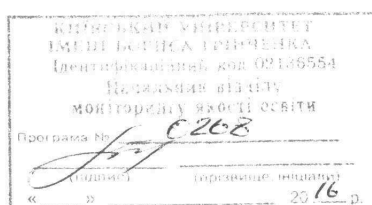 КИЇВСЬКИЙ УНІВЕРСИТЕТ
ІМЕНІ БОРИСА ГРІНЧЕНКА
Ідентифікаційний код 02136554
Начальник відділу
моніторингу якості освіти
Програма № 0268
(підпис) (прізвище, ініціали)
« » 2016 р.